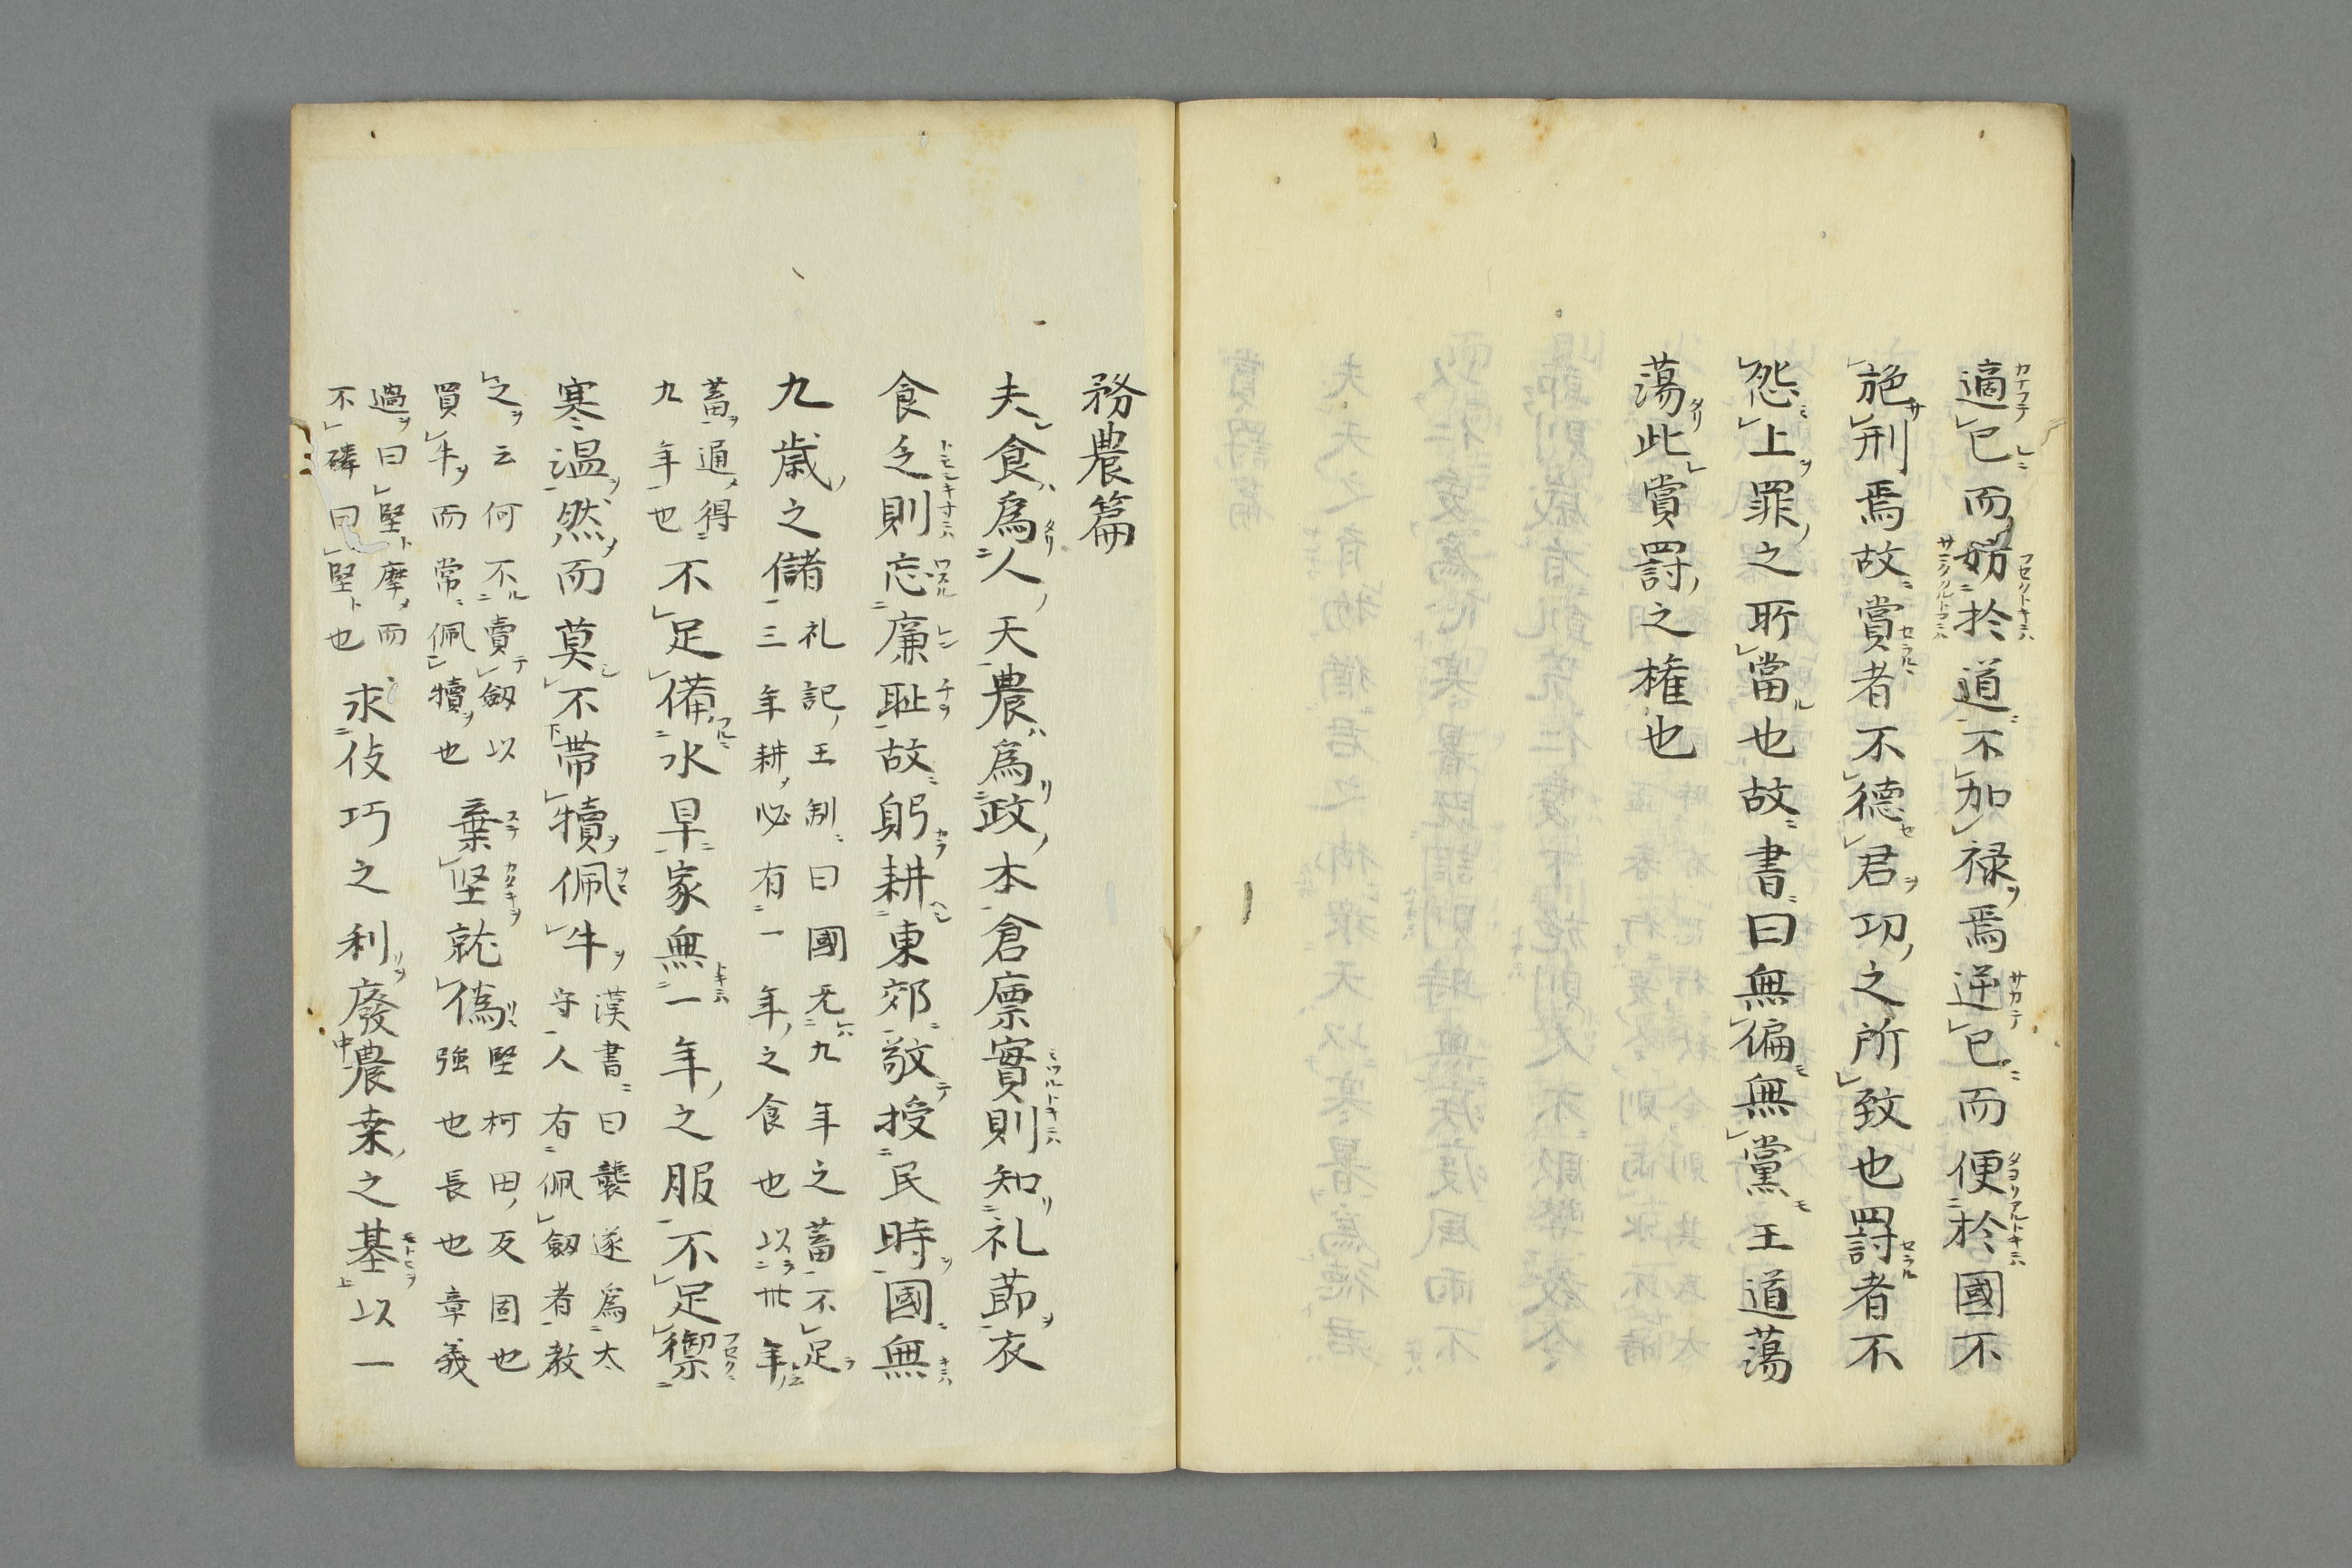 適已而妨於道不加禄焉逆已而便於國不
施刑焉故賞者不德君功之所致也罰者不
怨上罪之所當也故書曰無偏無黨王道蕩
蕩此賞罰之權也
務農篇
夫食爲人天農爲政本倉廩實則知礼莭衣
食乏則忘廉耻故躬耕東郊敬授民時國無
九歳之儲礼記王制曰國无九年之蓄不足
三年耕必有一年之食也以卅年
蓄通得
九年也不足備水旱家無一年之服不足禦
寒温然而莫不帯犢佩牛漢書曰襲遂爲太
守人有佩劔者教
之云何不賣劔以
買牛而常佩犢也棄堅就偽堅柯田反固也
強也長也章義
過曰堅摩而
不磷曰堅也求伎巧之利廢農桒之基以一